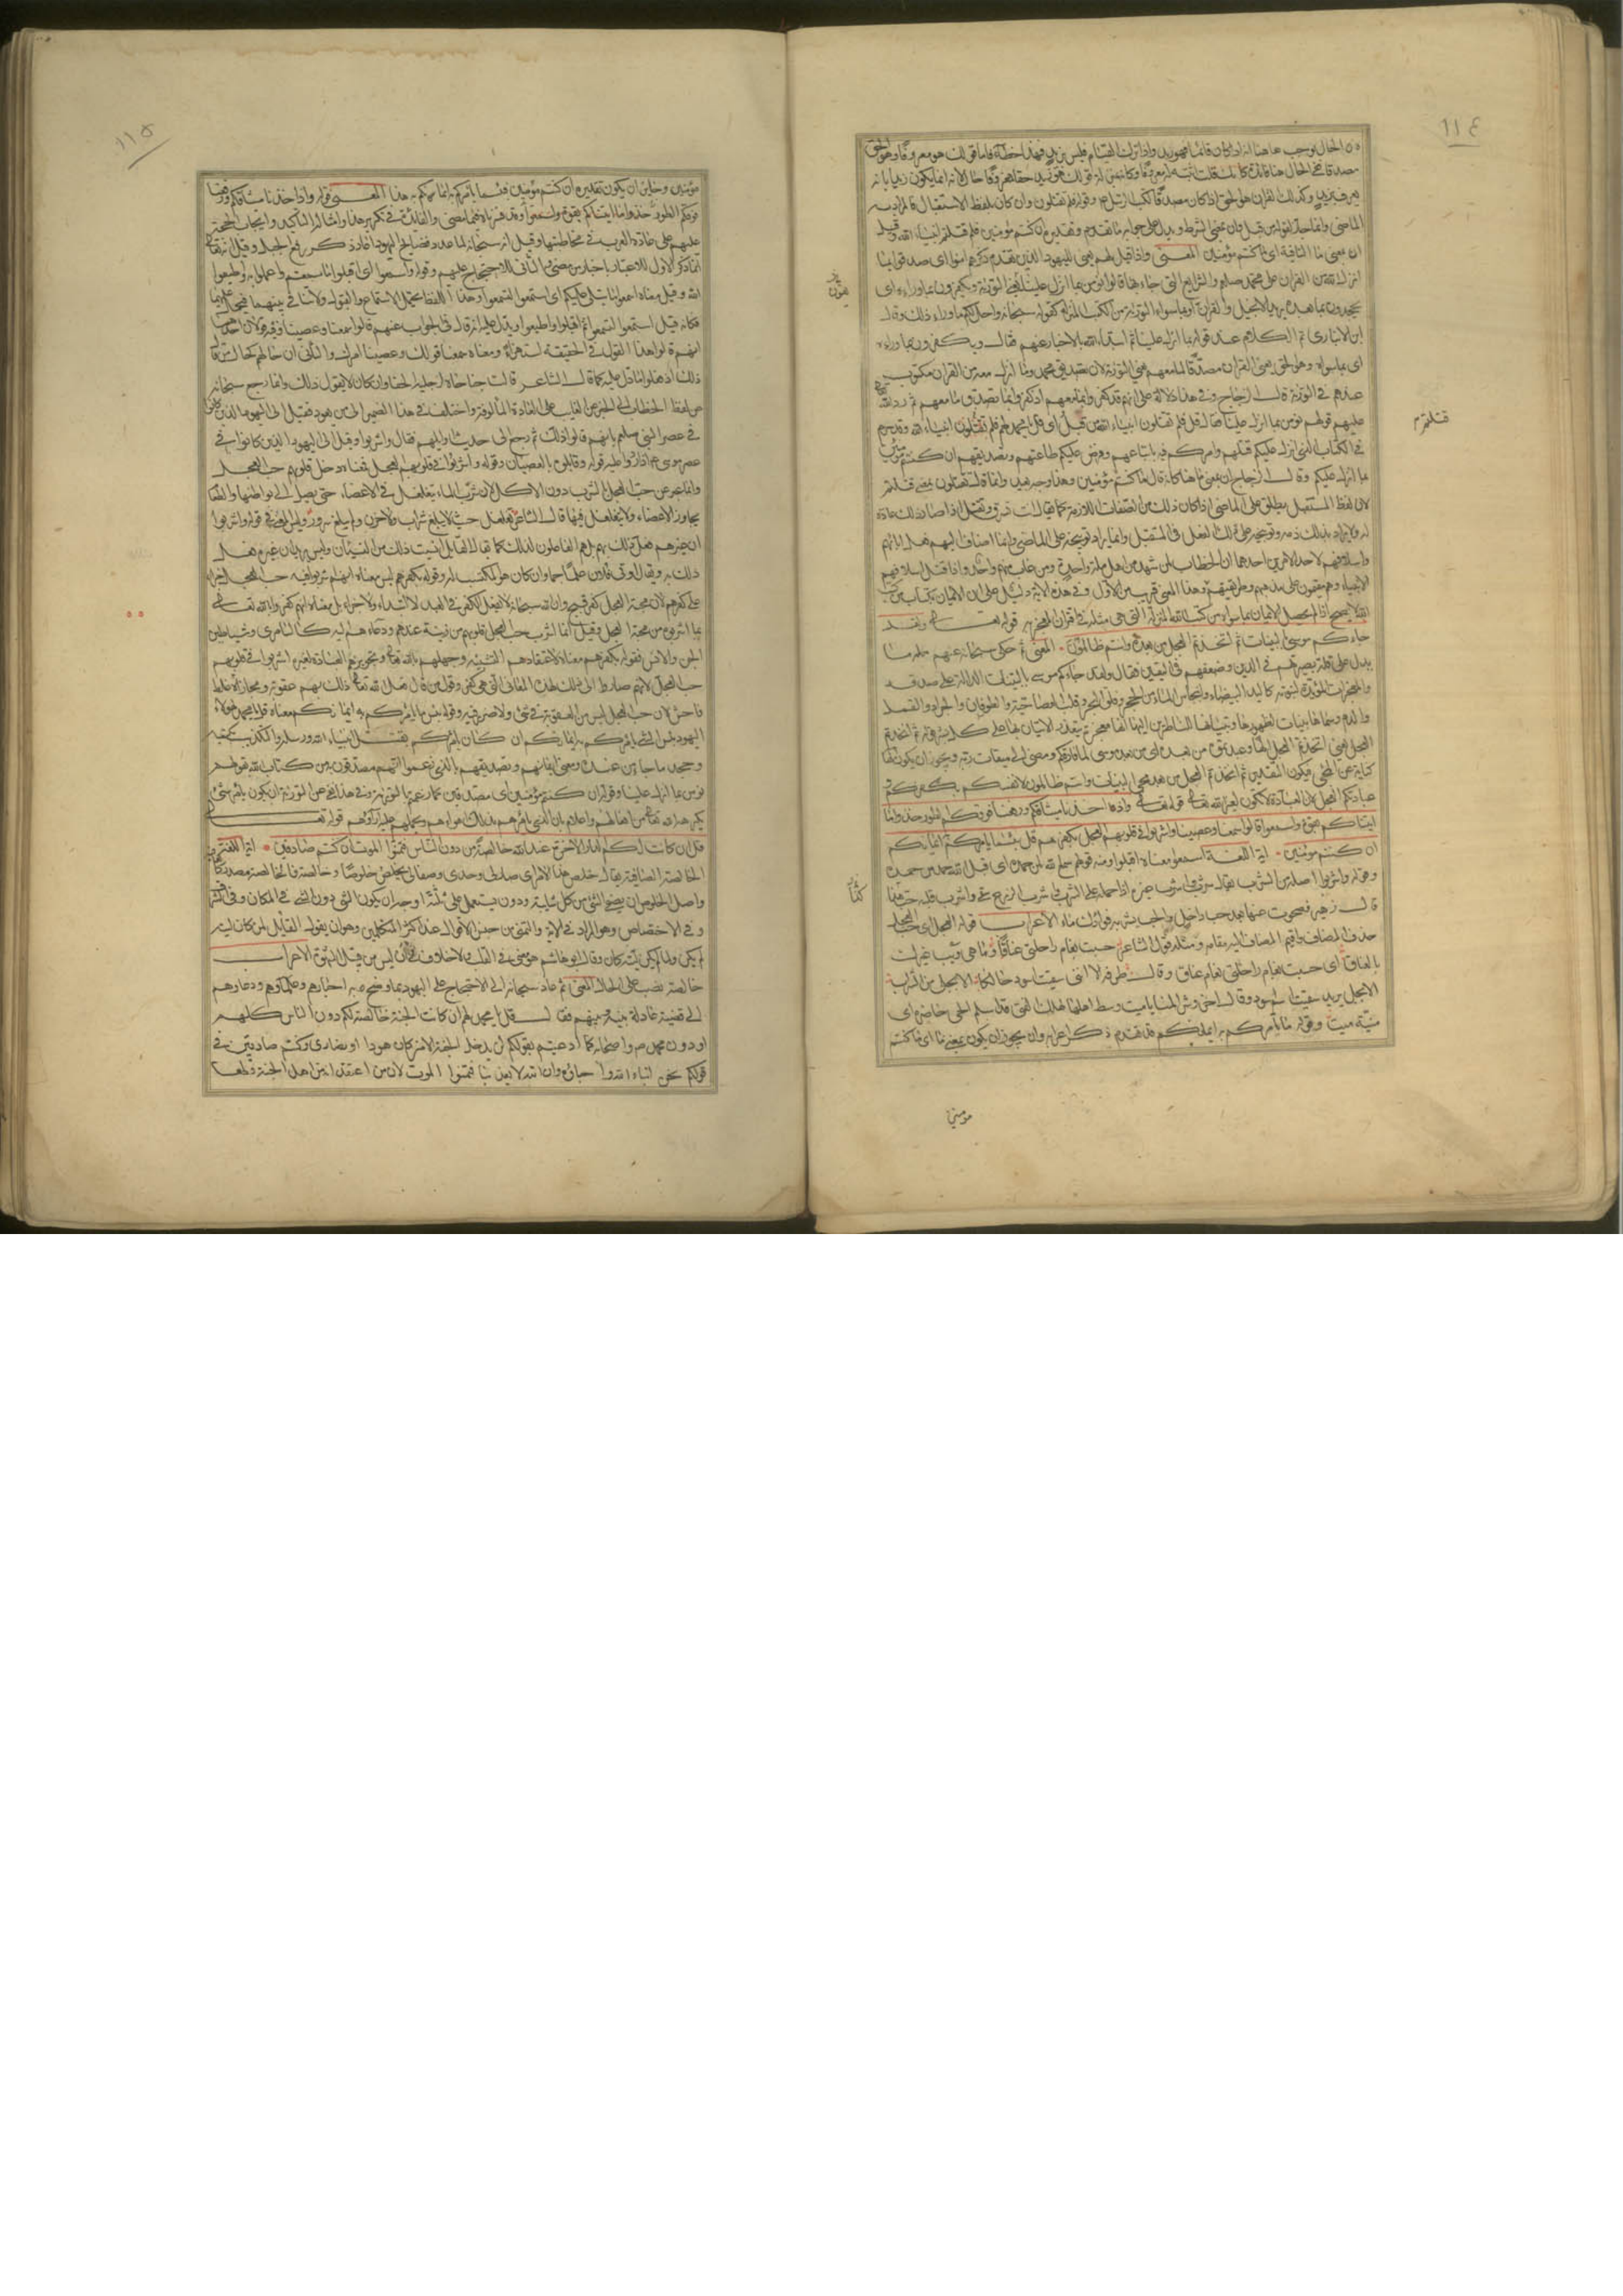 ١١٤
الحال يوجب هاهنا انه اذا كان قائما فهو زيد واذا ترك القيام فليس بزيد فهذا خطأ فاما قولك هو زيد معروفا وهو الحق
مصدقا ففي الحال هنا فائدة كانك قلت اثبته له معروفا وكانه بمنزلة قولك هو زيد حقا فمعروفا حال لانه انما يكون زيدا بانه
يعرف بزيد وكذلك القران هو الحق اذا كان مصدقا لكتب الرسل ع وقوله فلم تقتلون وان كان بلفظ الاستقبال فالمراد به
الماضي وانما جاز لقوله من قبل وان بمعنى الشرط ويدل على جوابه ما تقدم وتقديره ان كنتم مؤمنين فلم قتلتم انبياء الله وقيل
ان بمعنى ما النافية اى ما كنتم مؤمنين المعنى واذا قيل لهم يعني لليهود الذين تقدم ذكرهم امنوا اى صدقوا بما
انزل الله من القران على محمد صلعم والشرايع التي جاء بها قالوا نؤمن بما انزل علينا يعني التورية ويكفرون بما وراءه اى
يجحدون بما بعده يريد الانجيل والقران او بما سوى التورية من الكتب المنزلة كقوله سبحانه واحل لكم ما وراء ذلك وقال
ابن الانباري تم الكلام عند قوله بما انزل علينا ثم ابتدأ الله بالاخبار عنهم فقال ويكفرون بما وراءه
اى بما سواه وهو الحق يعني القران مصدقا لما معهم يعني التورية لان تصديق محمد وما انزل معه من القران مكتوب
عندهم في التورية قال الزجاج وفي هذا دلالة على انهم قد كفروا بما معهم اذ كفروا بما يصدق ما معهم ثم رد الله تعالى
عليهم قولهم نؤمن بما انزل علينا فقال قل فلم تقتلون انبياء الله من قبل اى قل يا محمد لهم فلم تقتلون انبياء الله وقد حرم
في الكتاب الذي انزل عليكم قتلهم وامركم فيه باتباعهم وفرض عليكم طاعتهم وتصديقهم ان كنتم مؤمنين
بما انزل عليكم وقال الزجاج ان بمعنى ما هنا كانه قال ما كنتم مؤمنين وهذا وجه بعيد وانما قال تقتلون بمعنى قتلتم
لان لفظ المستقبل يطلق على الماضي اذا كان ذلك من الصفات اللازمة كما يقال انت تسرق وتقتل اذا صار ذلك عادة
له ولا يراد بذلك ذمه وتوبيخه على ذلك الفعل في المستقبل وانما يراد توبيخه على الماضي وانما اضاف اليهم فعل ابائهم
واسلافهم لاحد الامرين احدهما ان الخطاب لمن شهد من اهل ملة واحدة ومن غاب منهم واحد واذا قتل اسلافهم
الانبياء وهم مقيمون على مذهبهم وطريقتهم وهذا المعنى قريب من الاول وفي هذه الاية دليل على ان الايمان بكتاب من كتب
الله لا يصح اذا لم يحصل الايمان بما سواه من كتب الله المنزلة التي هي مثله في اقتران المعجزه به قوله تعالى ولقد
جاءكم موسى بالبينات ثم اتخذتم العجل من بعده وانتم ظالمون المعنى ثم حكى سبحانه عنهم ما
يدل على قلة بصيرتهم في الدين وضعفهم في اليقين فقال ولقد جاءكم موسى بالبينات الدالة على صدقه
والمعجزات المؤيدة لنبوته كاليد البيضاء وانبجاس الماء من الحجر وفلق البحر وقلب العصا حية والطوفان والجراد والقمل
والدم وسماها بينات لظهورها وتبينها للناظرين اليها انها معجزة يتعذر الاتيان بها على كل بشر وقوله ثم اتخذتم
العجل يعني اتخذتم العجل الها وعبدتموه من بعده اى من بعد موسى لما فارقكم ومضى الى ميقات ربه ويجوز ان يكون الهاء
كناية عن المجئ فيكون التقدير ثم اتخذتم العجل من بعد مجئ البينات وانتم ظالمون لانفسكم بكفركم
عبادتكم العجل لان العبادة لا تكون لغير الله تعالى قوله تعالى واذ اخذنا ميثاقكم ورفعنا فوقكم الطور خذوا ما
اتيناكم بقوة واسمعوا قالوا سمعنا وعصينا واشربوا في قلوبهم العجل بكفرهم قل بئسما يامركم به ايمانكم
ان كنتم مؤمنين اية اللغة اسمعوا معناه اقبلوا ومنه قولهم سمع الله لمن حمده اى قبل الله حمد من حمده
وقوله واشربوا اصله من الشرب يقال شرب واشرب غيره اذا حمله على الشرب واشرب الزرع سقي واشرب قلبه حب كذا
قال زهير فصحوت عنها بعد حب داخل والحب تشربه فؤادك داء الاعراب قوله العجل اى حب العجل
حذف المضاف واقيم المضاف اليه مقامه ومثله قول الشاعر حسبت بغام راحلتي عناقا وما هي ويب غيرك
بالعناق اى حسبت بغام راحلتي بغام عناق وقال طرفة الا انني سقيت اسود حالكا الا بجلي من الشراب
الا بجل يريد سقيت سم اسود وقال اخر وشر المنايا ميت وسط اهله كهلك الفتى قد اسلم الحي حاضره اى
منية ميت وقوله بئسما يأمركم به ايمانكم فقد تقدم ذكر اعرابه وان يجوز ان يكون بمعنى ما اى ما كنتم
مؤمنين
قتلتم
١١٥
مؤمنين وجايز ان يكون تقديره ان كنتم مؤمنين فبئسما يأمركم به ايمانكم به هذا المعنى قوله واذ اخذنا ميثاقكم ورفعنا
فوقكم الطور خذوا ما اتيناكم بقوة واسمعوا قد فسرناه فيما مضى والفائدة في تكرير هذا وامثاله التاكيد وايجاب الحجة
عليهم على عادة العرب في مخاطبتها وقيل انه سبحانه لما عد فضايح اليهود اعاد ذكر رفع الجبل وقيل انه تعالى
انما ذكر الاول للاعتبار باخبار من مضى والثاني للاحتجاج عليهم وقوله واسمعوا اى اقبلوا ما سمعتم واعملوا به واطيعوا
الله وقيل معناه اسمعوا ما يتلى عليكم اى استمعوا لتسمعوا وهذا اللفظ يحتمل الاستماع والقبول ولا تنافي بينهما فيحمل عليهما
فكانه قيل استمعوا لتسمعوا ثم اقبلوا واطيعوا ويدل عليه انه قال في الجواب عنهم قالوا سمعنا وعصينا وفيه قولان احدهما
انهم قالوا هذا القول في الحقيقة استهزاء ومعناه سمعنا قولك وعصينا امرك والثاني ان حالهم كحال من قال
ذلك اذ فعلوا ما دل عليه كما قال الشاعر قالت جناحاه لرجليه الحقا وان كان لا يقول ذلك وانما رجع سبحانه
عن لفظ الخطاب الى الخبر عن الغايب على العادة المألوفة واختلف في هذا الضمير الى من يعود فقيل الى اليهود الذين كانوا
في عصر النبي صلعم بانهم قالوا ذلك ثم رجع الى حديث اوائلهم فقال واشربوا وقيل الى اليهود الذين كانوا في
عصر موسى ع اذ ردوا عليه قوله وقابلوه بالعصيان وقوله واشربوا في قلوبهم العجل فمعناه دخل قلوبهم حب العجل
وانما عبر عن حب العجل بالشرب دون الاكل لان شرب الماء يتغلغل في الاعضاء حتى يصل الى بواطنها والطعام
يجاوز الاعضاء ولا يتغلغل فيها قال الشاعر تغلغل حيث لا يبلغ شراب ولا حزن ولم يبلغ سرور وليس المعنى في قوله واشربوا
ان غيرهم فعل ذلك بهم بل هم الفاعلون لذلك كما يقال القايل انسيت ذلك من النسيان وليس يريد ان غيره فعل
ذلك به ويقال اوتي فلان علما جما وان كان هو المكتسب له وقوله بكفرهم ليس معناه انهم اشربوا فيه حب العجل جزاء
على كفرهم لان محبة العجل كفر قبيح وان الله سبحانه لا يفعل الكفر في العبد لا ابتداء ولا جزاء بل معناه انهم كفروا بالله تعالى
بما اشربوه من محبة العجل وقيل انما اشرب حب العجل قلوبهم من زينه عندهم ودعاهم اليه كالسامري وشياطين
الجن والانس فقوله بكفرهم معناه لاعتقادهم التشبيه وجهلهم بالله تعالى وتجويزهم العبادة لغيره اشربوا في قلوبهم
حب العجل لانهم صاروا الى ذلك لهذه المعاني التي هي كفر وقول من قال فعل الله تعالى ذلك بهم عقوبة ومجازاة غلط
فاحش لان حب العجل ليس من العقوبة في شئ ولا ضرر فيه وقوله بئسما يأمركم به ايمانكم معناه قل يا محمد لهؤلاء
اليهود بئس الشئ يأمركم به ايمانكم ان كان يأمركم بقتل انبياء الله ورسله والتكذيب بكتبه
وجحد ما جاء من عنده ومعنى ايمانهم وتصديقهم بالذي زعموا انهم مصدقون من كتاب الله بقولهم
نؤمن بما انزل علينا وقوله ان كنتم مؤمنين اى مصدقين كما زعمتم بالتورية وفي هذا نفي عن التورية ان يكون يأمر بشئ
يكرهه الله تعالى من افعالهم واعلام بان الذي يامرهم بذلك اهواؤهم ويحملهم عليه آراؤهم قوله تعالى
قل ان كانت لكم الدار الاخرة عند الله خالصة من دون الناس فتمنوا الموت ان كنتم صادقين اية اللغة
الخالصة الصافية يقال خلص هذا الامر اى صار لي وحدي وصفا لي يخلص خلوصا وخالصة والخالصة مصدر كالعافية
واصل الخلوص ان يصفو الشئ من كل شائبة ودون يستعمل على ثلثة اوجه ان يكون الشئ دون الشئ في المكان وفي الشرف
وفي الاختصاص وهو المراد في الاية والتمني من جنس الاقوال عند اكثر المتكلمين وهو ان يقول القايل لما كان ليته
لم يكن ولما لم يكن ليته كان وقال ابو هاشم هو معنى في القلب ولا خلاف في انه ليس من قبيل الشهوة الاعراب
خالصة نصب على الحال المعنى ثم عاد سبحانه الى الاحتجاج على اليهود بما فضح به احبارهم وعلماؤهم ودعاهم
الى قضية عادلة بينه وبينهم فقال قل يا محمد لهم ان كانت الجنة خالصة لكم دون الناس كلهم
او دون محمد ص واصحابه كما ادعيتم بقولكم لن يدخل الجنة الا من كان هودا او نصارى وكنتم صادقين في
قولكم نحن ابناء الله واحباؤه وان الله لا يعذبنا فتمنوا الموت لان من اعتقد انه من اهل الجنة قطعا